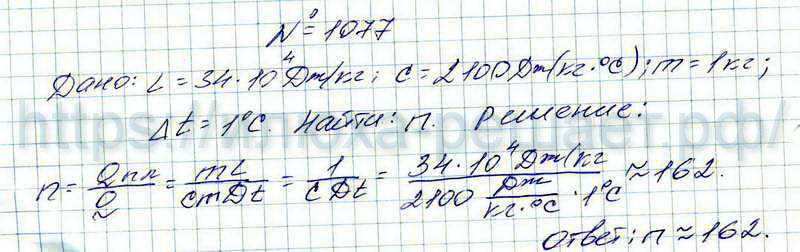 № 1077
Дано: L = 34·10⁴ Дж/кг; c = 2100 Дж/(кг·°C); m = 1 кг;
Δt = 1°C. Найти: n. Решение:
n = Qпл/Q = mL/cmΔt = 1/cΔt = 34·10⁴ Дж/кг / 2100 Дж/кг·°C · 1°C ≈ 162.
Ответ: n ≈ 162.